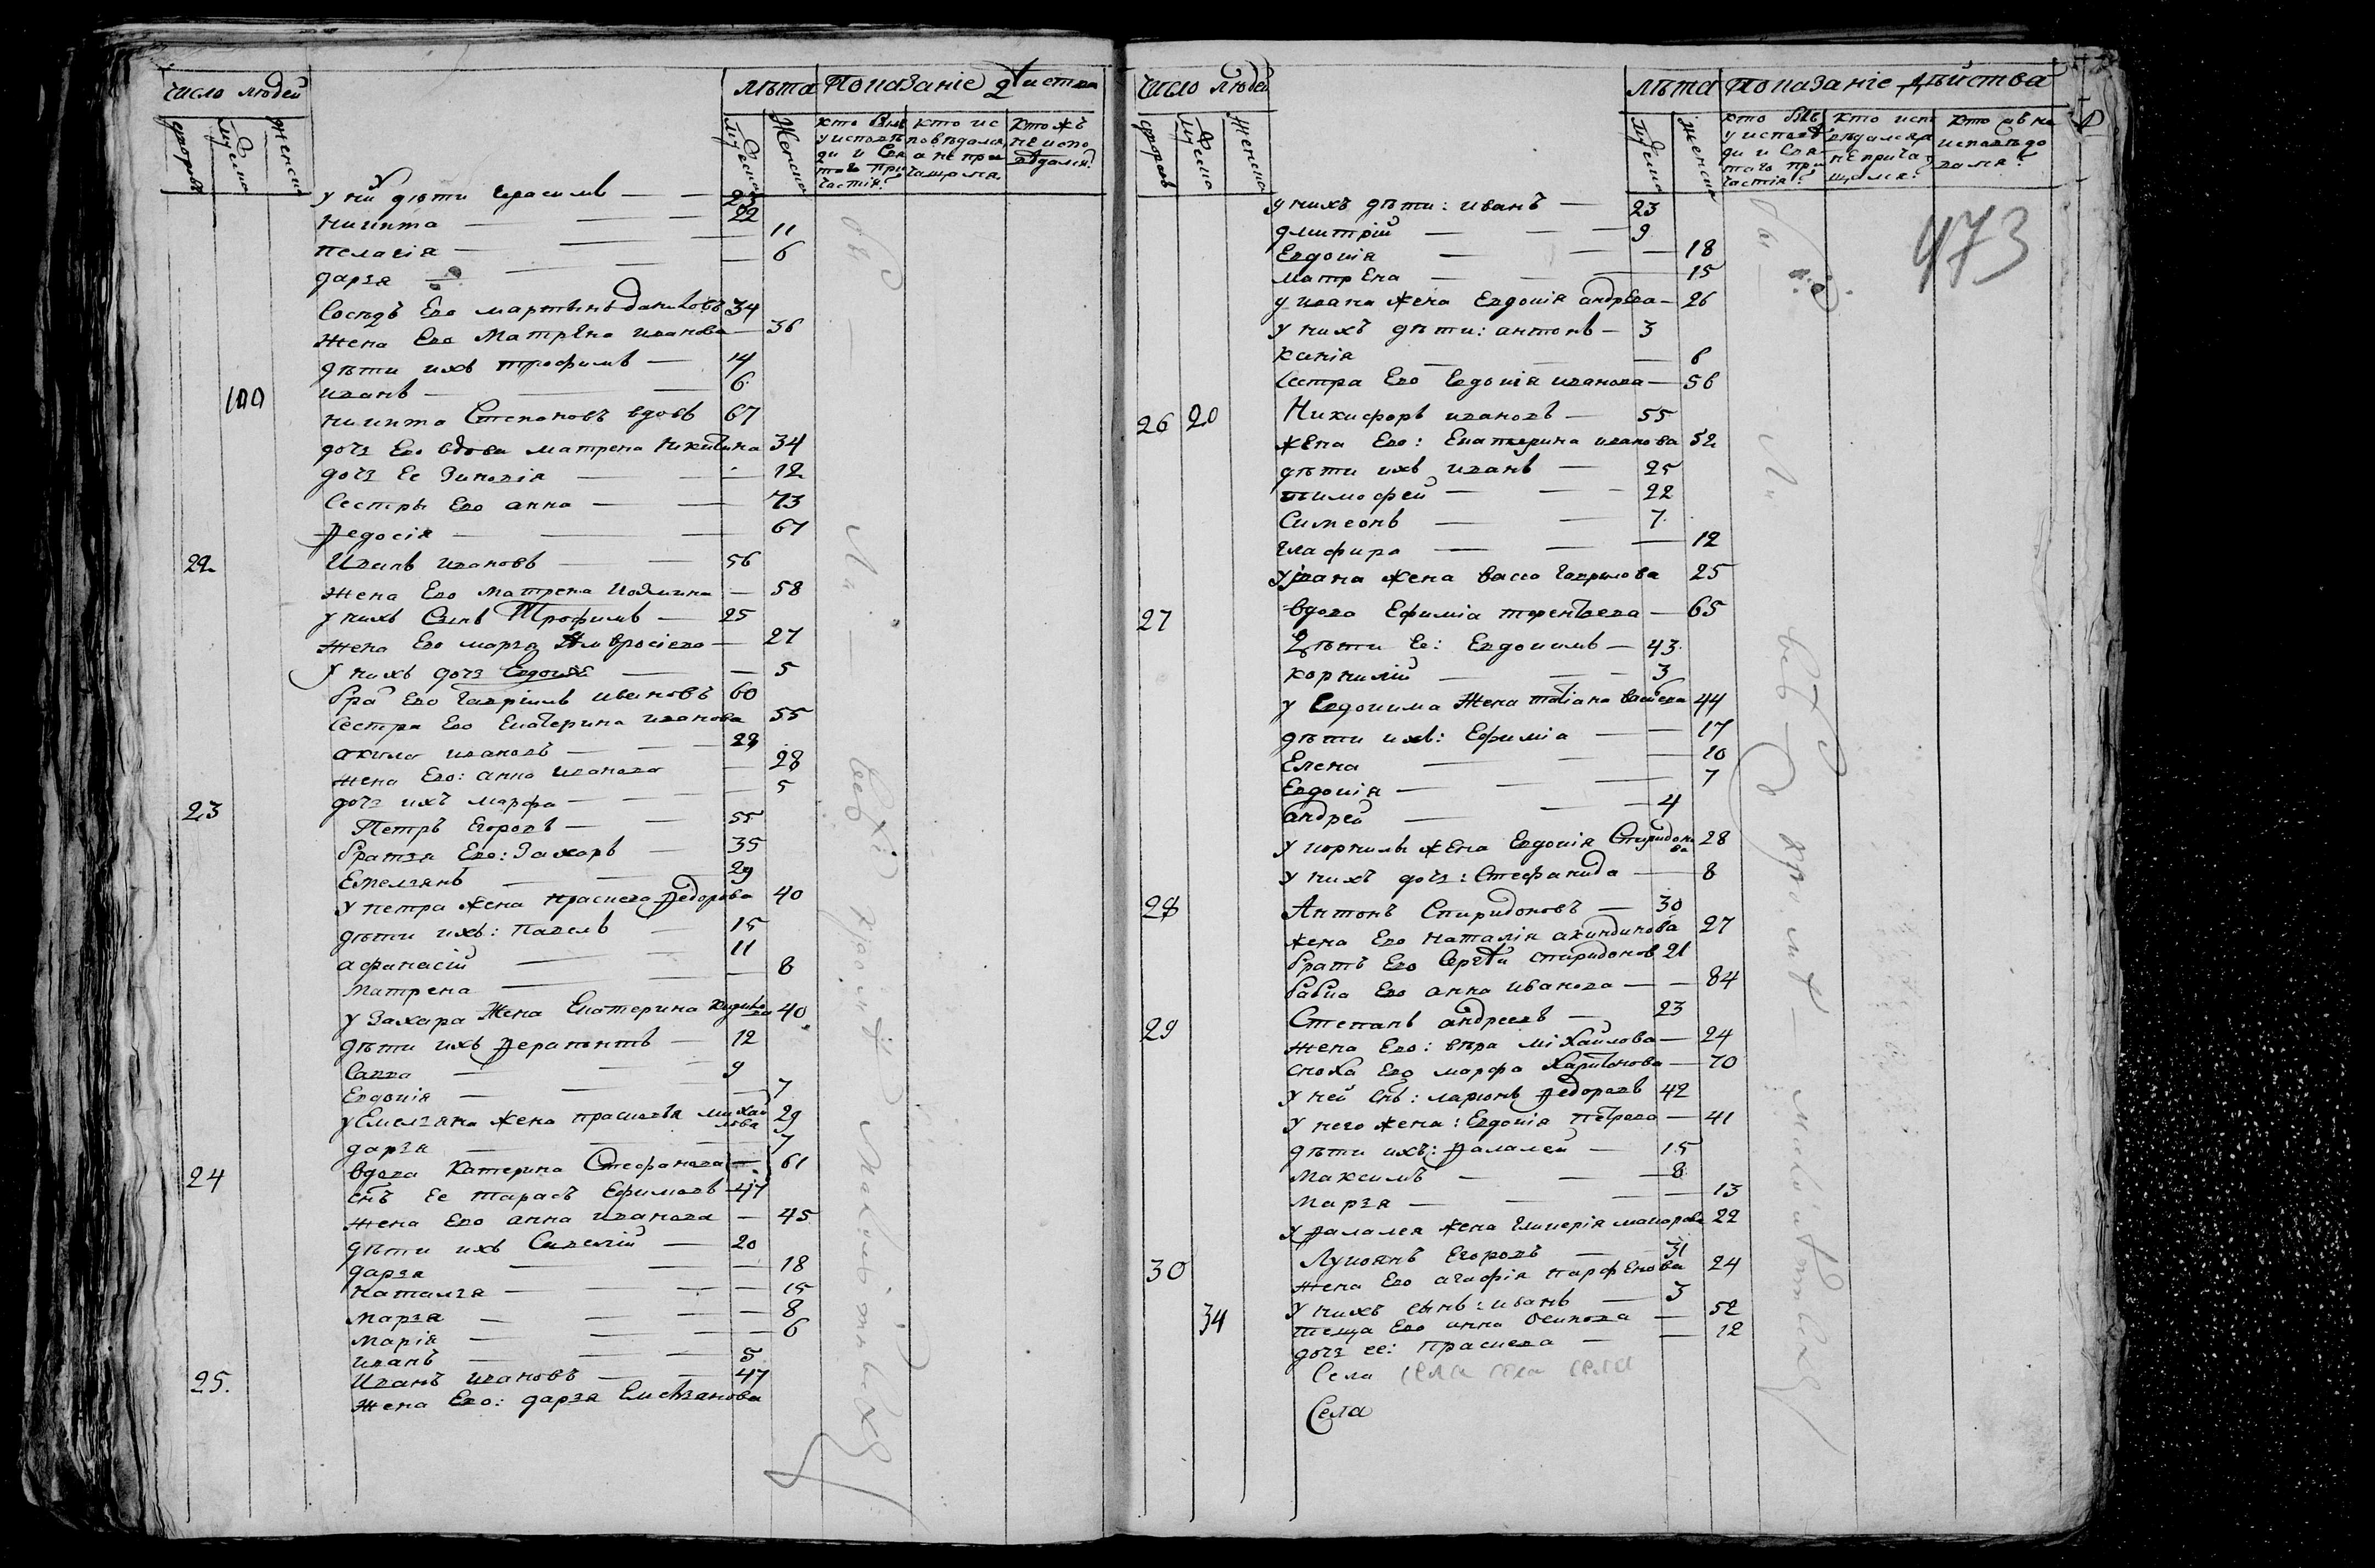 число людей
лѣта показаніе дѣиства
дворовъ
мужеска
женска
мужеска
женска
кто былъ у исповѣди и святаго причастія?
кто исповѣдался, а не причащался
кто жъ не исповѣдался?
у ней дѣти герасимъ — — 25
никита — — 22
пелагія — — — 11
дарья — — — 6
Сосѣдъ Его мартынъ даниловъ 34
жена Его матрЕна иванова — 36
дѣти ихъ трофимъ — 14
иванъ — — 6
100
никита Степановъ вдовъ 67
дочь Его вдова матрена никитина 34
дочь Ее Зиновія — — 12
Сестры Его анна — — 73
Ѳедосія — — — 67
22 Иванъ ивановъ — — 56
жена Его матрена — 58
у нихъ Сынъ Трофимъ — 25
жена Его марѳа Амвросіева — 27
у нихъ дочь Евдокія — — 5
бра Его гавріилъ ивановъ 60
Сестра Его Екатерина иванова 55
акила ивановъ — — 29
жена Его: анна иванова — 28
дочь ихъ марфа — — — 5
23 Петръ Егоровъ — — 55
братья Его: Захаръ — 35
Емельянъ — — 29
у петра жена прасковя Ѳедорова 40
дѣти ихъ: павелъ — 15
афанасій — — 11
матрена — — — 8
у Захара жена Екатерина 40
дѣти ихъ Ѳерапонтъ — 12
Савва — — 9
Евдокія — — — 7
у Емельяна жена прасковья михайлова 29
дарья — — — 7
24 вдова катерина Стефанова — 61
снъ Ее тарасъ Ефимовъ — 47
жена Его анна иванова — 45
дѣти ихъ Савелій — 20
дарья — — — 18
наталья — — — 15
марья — — — 8
марія — — — 6
иванъ — — — 5
25. Иванъ ивановъ — — 47
жена Его: дарья Емельянова
число людей
лѣта показаніе дѣйства
дворовъ
мужеска
женска
мужеска
женска
кто былъ у исповѣди и святаго причастія?
кто исповѣдался а не причащался?
кто иъ не исповѣдовался?
473
у нихъ дѣти: иванъ — 23
дмитрій — — — 9
Евдокія — — — 18
матрЕна — — — 15
у ивана жена Евдокія андрЕева — 26
у нихъ дѣти: антонъ — 3
— — — 6
Сестра Его Евдокія иванова — 56
26 20 Никифоръ ивановъ — 55
жена Его: Екатерина иванова 52
дѣти ихъ иванъ — 25
тимофей — — — 22
Симеонъ — — 7
глафира — — — 12
у ивана жена васса гаврилова 25
27 вдова Ефимія терентьева — 65
Дѣти Ее: Евдокимъ — 43
корнилій — — — 3
у Евдокима жена татіана васильева 44
дѣти ихъ: Ефимія — — 17
Елена — — 10
Евдокія — — — 7
андрей — — — 4
у корнилы жена Евдокія Спиридонова 28
у нихъ дочь: Стефанида — 8
28 Антонъ Спиридоновъ — 30
жена Его наталія акиндинова 27
братъ Его Сергѣй спиридонов 21
бабка Его анна иванова — — 84
29 Степанъ андреевъ — 23
жена Его: вѣра міхайлова — 24
сноха Его марфа харитонова — 70
у ней снъ: ларіонъ Ѳедоровъ 42
у него жена: Евдокія петрова — 41
дѣти ихъ: Ѳалалей — 15
максимъ — — — 8
марья — — — 13
у Ѳалалея жена гликерія макарова 22
30 Лукіянъ Егоровъ — — 31
жена Его агафія парфЕнова 24
у нихъ сынъ: иванъ — 3
34
теща Его анна осипова — 52
дочь ее: прасковя — — 12
Села села села села
Села